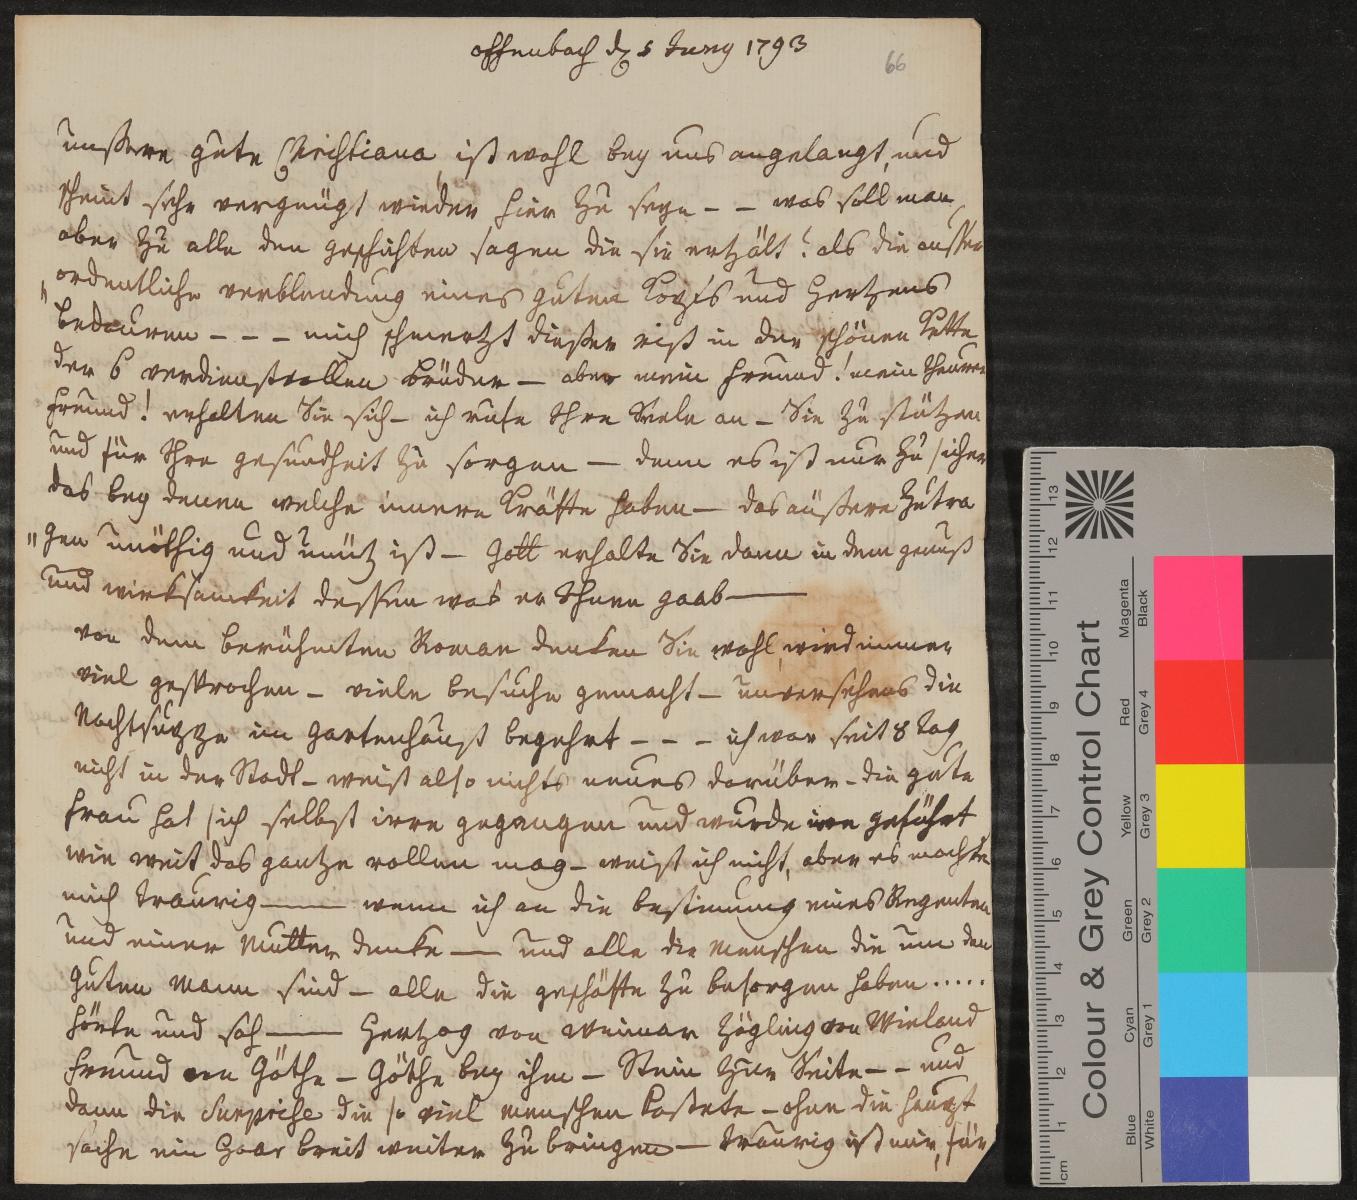 offenbach d 5 Juny 1793
66
unssere gute Christiana, ist wohl bey uns angelangt, und
scheint sehr vergnügt wieder hier zu seyn - - was soll man
aber zu alle den geschichten sagen die sie ertzält! als die ausser
ordentliche verblendung eines guten Kopfs und Hertzens
"bedauren - - - mich schmertzt diesser riss in der schönen Kette
der 6 verdienstvollen brüder - aber mein freund! mein theurer
freund! erhalten Sie sich - ich rufe Ihre Seele an - Sie zu stützen
und für Ihre gesundheit zu sorgen - denn es ist nur zu sicher
das bey denen welche innere Kräfte haben - das äussere Zutra
"gen unöthig und unütz ist - Gott erhalte Sie dann in dem genuss
und wirksamkeit dessen was er Ihnen gaab -
von dem berühmten Roman denken Sie wohl, wird immer
viel gesprochen - viele besuche gemacht - unversehens die
Nachtsuppe im Gartenhaus begehrt - - - ich war seit 8 tag
nicht in der Stadt - weiss also nichts neues darüber - die gute
frau hat sich selbst irre gegangen und wurde irre geführt
wie weit das gantze rollen mag - weiss ich nicht, aber es machte
mich traurig - wenn ich an die bestimung eines Regenten
und einer Mutter denke - und alle die Menschen die um den
guten Mann sind - alle die geschäfte zu besorgen haben .....
hörte und sah - Hertzog von Weimar Zögling von Wieland
freund von Göthe - Göthe bey ihm - Stein zur Seite - - und
dann die Surprise die so viel menschen kostete - ohne die haupt
sache ein Haar breit weiter zu bringen - traurig ist mir, für
Colour & Grey Control Chart
Blue Cyan Green Yellow Red Magenta
White Grey 1 Grey 2 Grey 3 Grey 4 Black
cm 1 2 3 4 5 6 7 8 9 10 11 12 13